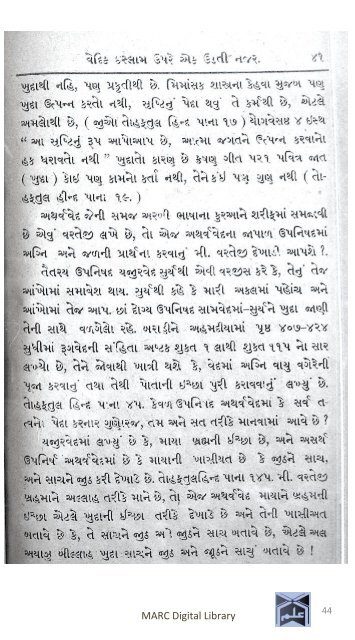 વેદિક ઇસ્લામ ઉપરે એક ઉડતી નજર. ૪૧
ખુદાથી નહિ, પણ પ્રકૃતીથી છે. મિમાંસક શાસ્ત્રના કેહવા મુજબ પણ
ખુદા ઉત્પન્ન કરતો નથી, સૃષ્ટિનું પેદા થવું તે કર્મથી છે, એટલે
અમલોથી છે, ( જુઓ તોહફતુલ હિન્દ પાના ૧૭ ) યોગવેસષ્ટ ૪ ઇસ્થ
“ આ સૃષ્ટિનું રૂપ આપોઆપ છે, આત્મા જગતને ઉત્પન્ન કરવાનો
હક ધરાવતો નથી ” ખુદાતો કારણ છે કૃપણ ગીત પરશ પવિત્ર જાત
( ખુદા ) કોઇ પણ કામનો કર્તા નથી, તેને કંઇ પણ ગુણ નથી ( તો-
હફતુલ હીન્દ પાના ૧૯. )
અથર્વવેદ જેની સમજ અરબી ભાષાના કુરઆને શરીફમાં સમજવી
છે એવું વરતેજી લખે છે, તો એજ અથર્વવેદના જાપાળ ઉપનિષદમાં
અગ્નિ અને જળની પ્રાર્થના કરવાનું મી. વરતેજી દેખાડી આપશે ?.
તેતરય ઉપનિષદ યજુરવેદ સુર્યથી એવી વરજીસ કરે કે, તેનું તેજ
આંખોમાં સમાવેશ થાય. સુર્યથી કહે કે મારી અકલમાં પહોંચ અને
આંખોમાં તેજ આપ. છાંદોગ્ય ઉપનિષદ સામવેદમાં-સુર્યને ખુદા જાણી
તેની સાથે વળગેલો રહે. બરાહીને અહમદીયામાં પૃષ્ઠ ૪૦૭-૪૨૪
સુધીમાં રૂગવેદની સંહિતા અષ્ટક શુકત ૧ લાથી શુકત ૧૧૫ નો સાર
લખ્યો છે, તેને જોવાથી ખાત્રી થશે કે, વેદમાં અગ્નિ વાયુ વગેરેની
પૂજા કરવાનું તથા તેથી પોતાની ઇચ્છા પુરી કરાવવાનું લખ્યું છે.
તોહફતુલ હિન્દ પાના ૪૫. કેવળ ઉપનિષદ અથર્વવેદમાં કે સર્વ ત-
ત્વનો પેદા કરનાર ગુણોરજ, તમ અને સત તરીકે માનવામાં આવે છે ?
યજુરવેદમાં લખ્યું છે કે, માયા બ્રહ્મની ઇચ્છા છે, અને અસર્થ
ઉપનિષ અથર્વવેદમાં છે કે માયાની ખાસીયત છે કે જુઠને સાચ,
અને સાચને જુઠ કરી દેખાડે છે. તોહફતુલહિન્દ પાના ૧૪૫. મી. વરતેજી
બ્રહ્મમાને અલ્લાહ તરીકે માને છે, તો એજ અથર્વવેદ માયાને બ્રહ્મની
ઇચ્છા એટલે ખુદાની ઇચ્છા તરીકે દેખાડે છે અને તેની ખાસીઅત
બતાવે છે કે, તે સાચને જુઠ અને જુઠને સાચ બતાવે છે, એટલે અલ
અયાઝુ બીલ્લાહ ખુદા સાચને જુઠ અને જુઠને સાચું બતાવે છે !
MARC Digital Library
44